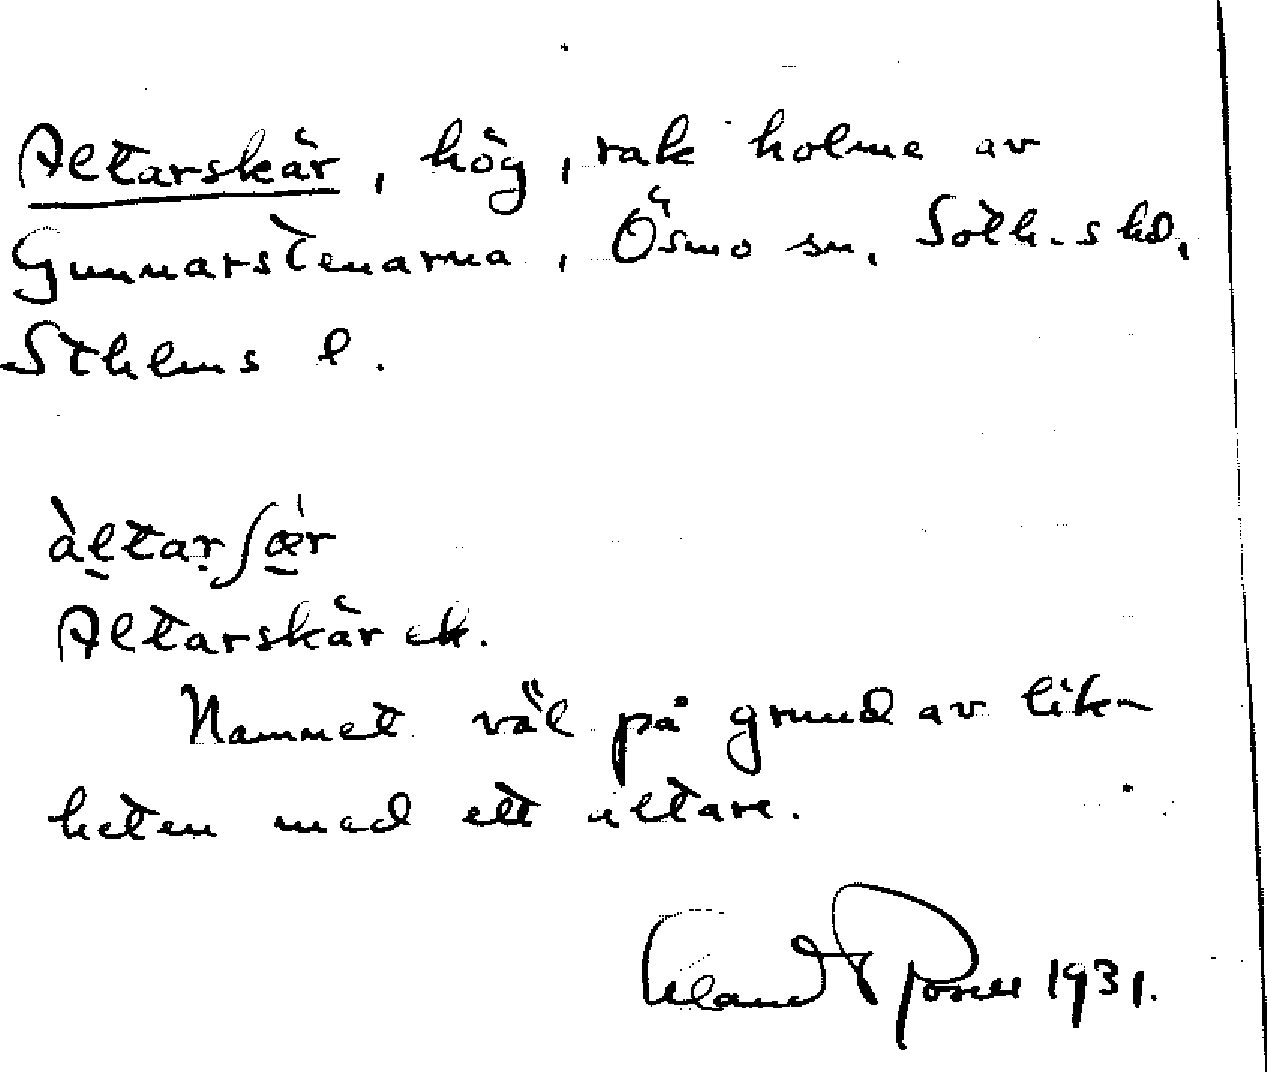 Altarskär, hög, rak holme av
Gunnarstenarna, Ösmo sn, Soth. skd,
Sthlms l.
àltarʃæ̠'r
Altarskär ek.
Namnet väl på grund av lik-
heten med ett altare.
1931.